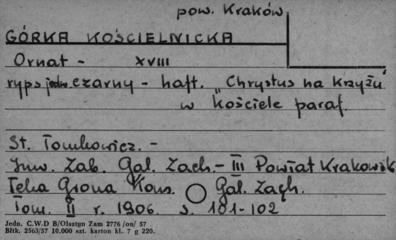 pow. Kraków
GÓRKA KOŚCIELNICKA
Ornat - XVIII
ryps jedw. czarny - haft. "Chrystus na krzyżu"
w kościele paraf.
St. Tomkowicz. -
Inw. Zab. Gal. Zach. - III Powiat Krakowsk
Teka Grona Kons. Gal. Zach.
Tom. II r. 1906. s. 101-102
Jedn. C.W.D B/Olsztyn Zam 2776 /on/ 57
Błtk. 2563/57 10.000 szt. karton kl. 7 g 220.